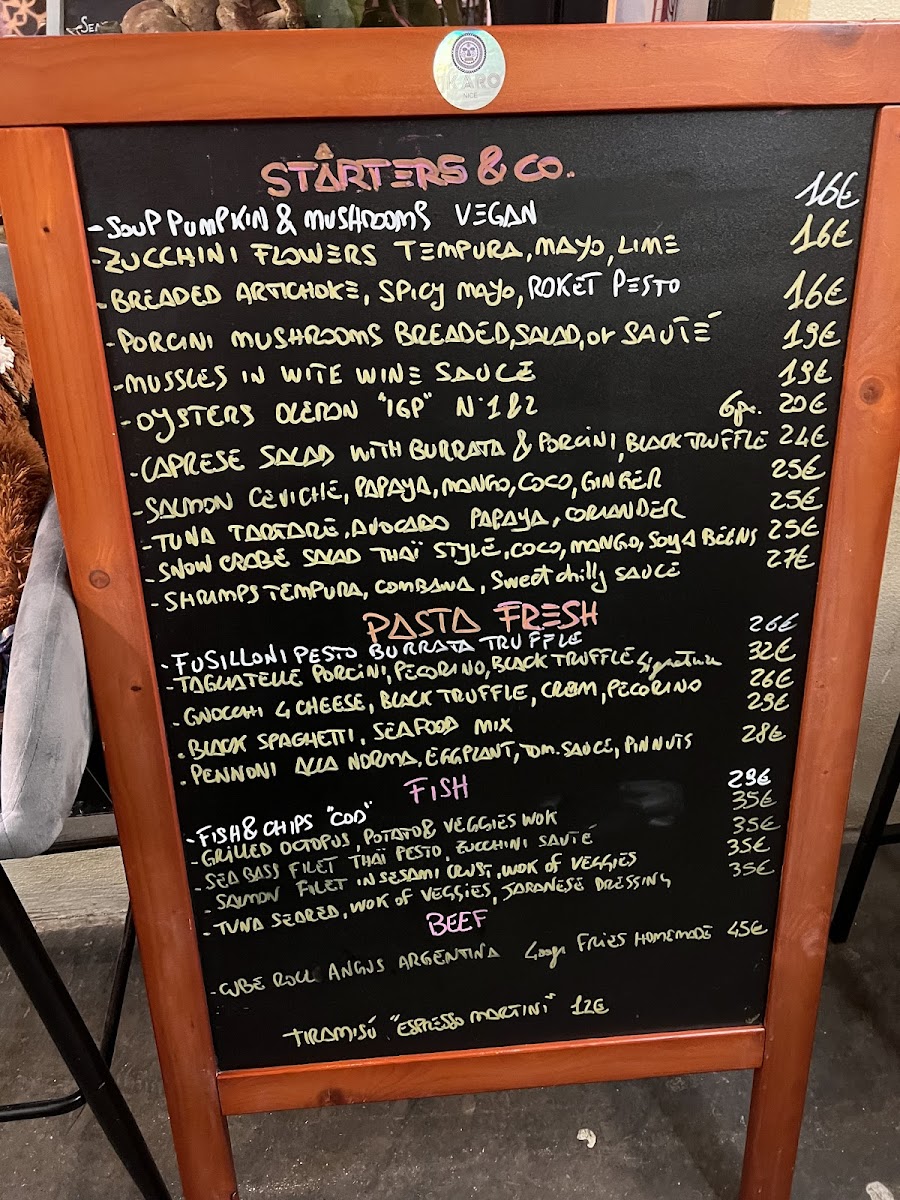 SEA
IKARO
NICE
STARTERS & CO..
- SOUP PUMPKIN & MUSHROOMS VEGAN 16€
- ZUCCHINI FLOWERS TEMPURA, MAYO, LIME 16€
- BREADED ARTICHOKE, SPICY MAYO, ROKET PESTO 16€
- PORCINI MUSHROOMS BREADED, SALAD, or SAUTÉ 19€
- MUSSLES IN WITE WINE SAUCE 19€
- OYSTERS OLERON "IGP" N°1&2 6pc. 20€
- CAPRESE SALAD WITH BURRATA & PORCINI, BLACK TRUFFLE 24€
- SALMON CEVICHE, PAPAYA, MANGO, COCO, GINGER 25€
- TUNA TARTARE, AVOCADO PAPAYA, CORIANDER 25€
- SNOW CRABE SALAD THAÏ STYLE, COCO, MANGO, SOYA BEENS 25€
- SHRIMPS TEMPURA, COMBAWA, Sweet chilly SAUCE 27€
PASTA FRESH
- FUSILLONI PESTO BURRATA TRUFFLE 26€
- TAGLIATELLE PORCINI, PECORINO, BLACK TRUFFLE Signature 32€
- GNOCCHI 4 CHEESE, BLACK TRUFFLE, CREM, PECORINO 26€
- BLACK SPAGHETTI, SEAFOOD MIX 29€
- PENNONI ALLA NORMA, EGGPLANT, TOM. SAUCE, PINNUTS 28€
FISH
- FISH & CHIPS "COD" 29€
- GRILLED OCTOPUS, POTATO & VEGGIES WOK 35€
- SEA BASS FILET THAÏ PESTO, ZUCCHINI SAUTÉ 35€
- SALMON FILET IN SESAMI CRUST, WOK OF VEGGIES 35€
- TUNA SEARED, WOK OF VEGGIES, JAPANESE DRESSING 35€
BEEF
- CUBE ROLL ANGUS ARGENTINA 400gr FRIES HOMEMADE 45€
TIRAMISÚ "ESPRESSO MARTINI" 12€